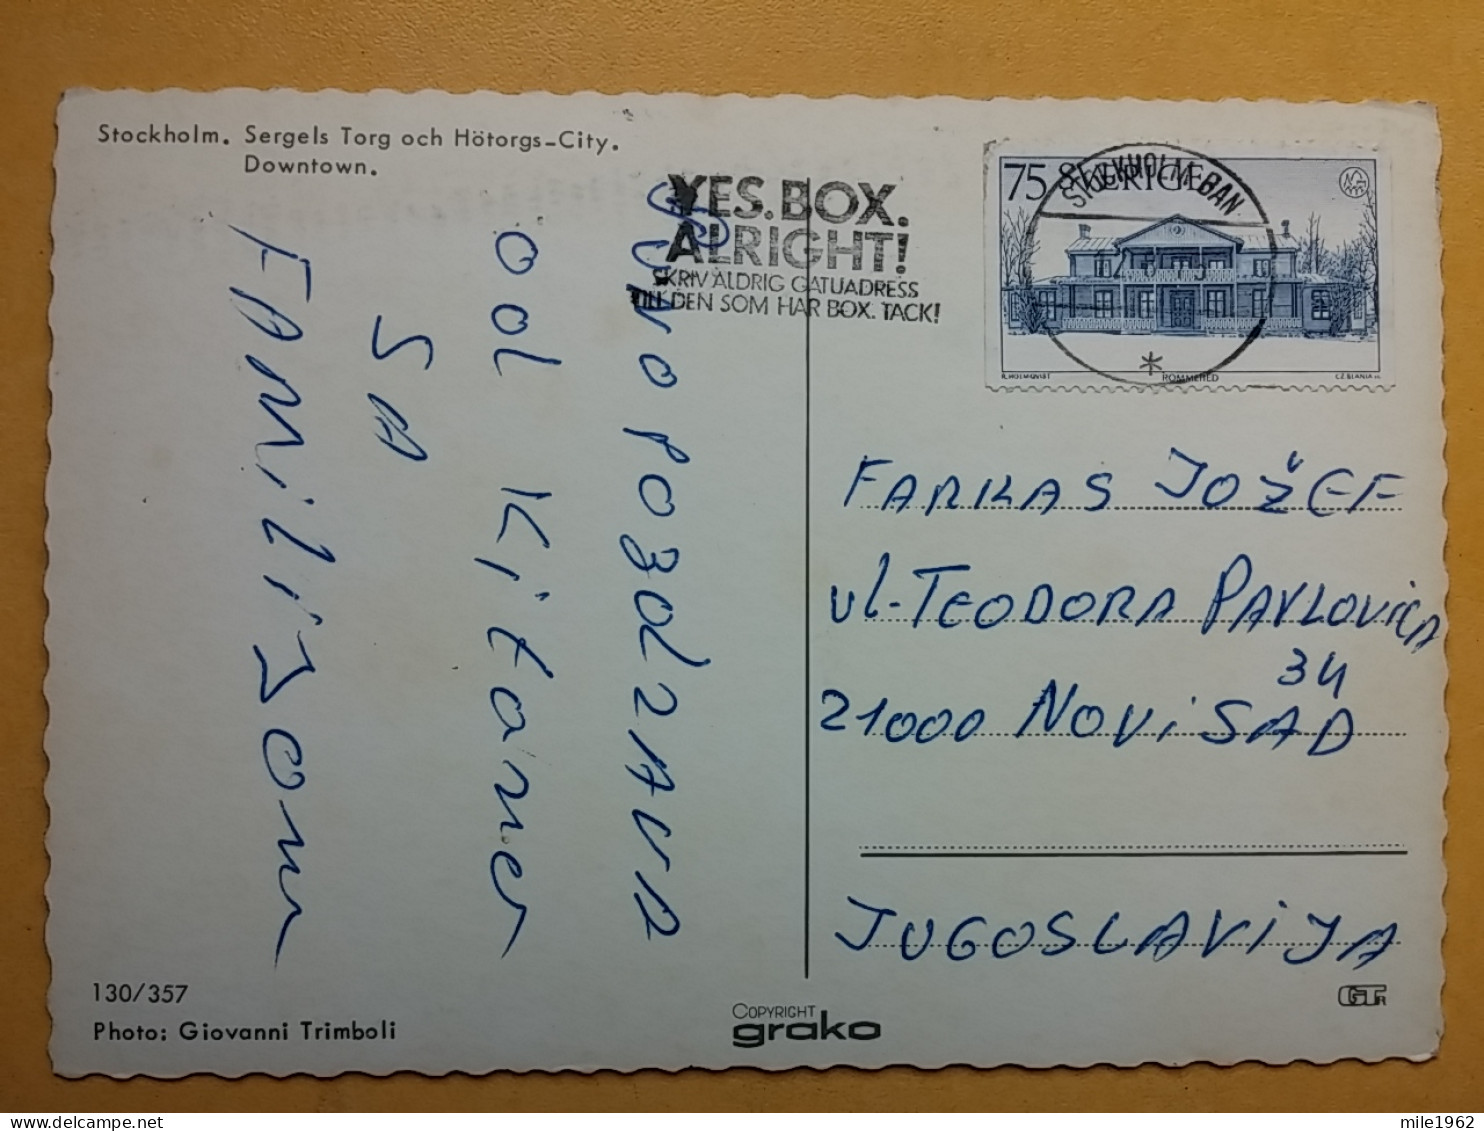 Stockholm. Sergels Torg och Hötorgs-City.
Downtown.
YES. BOX.
ALRIGHT!
SKRIV ALDRIG GATUADRESS
TILL DEN SOM HAR BOX. TACK!
75 SVERIGE
STOCKHOLM BAN
R. HOLMQVIST ROMMEHED CZ. SLANIA SC.
POZDZAVA
od Kitanet
SA
FAMiLiJOM
FARKAS JOŽEF
ul-TEODORA PAVLOVićA
34
21000 NOVi SAD
JUGOSLAViJA
130/357
Photo: Giovanni Trimboli
COPYRIGHT
grako
mile1962